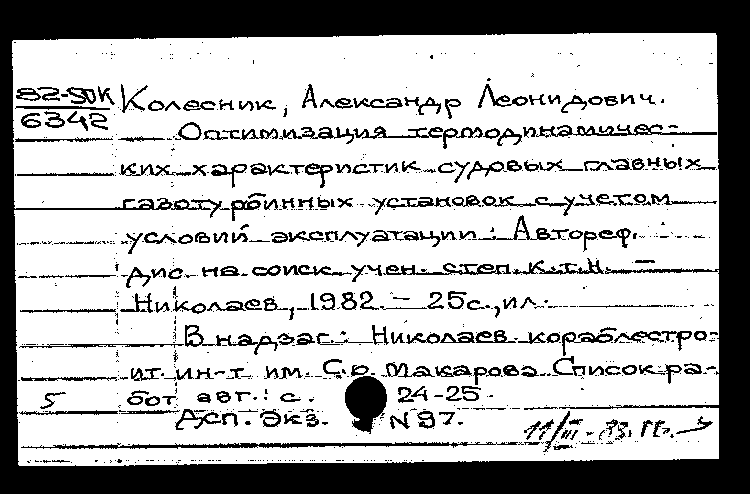 82-5DK
6342
Колесник, Александр Леонидович.
Оптимизация термодинамичес-
ких характеристик судовых главных
газотурбинных установок с учетом
условий эксплуатации: Автореф.
дис. на соиск. учен. степ. к.т.н. —
Николаев, 1982. – 25с., ил.
В надзаг.: Николаев. кораблестро-
ит. ин-т им. С.О. Макарова. Список ра-
5 бот авт.: с. 24-25.
Дсп. Экз. N 97.
11/III - 83.